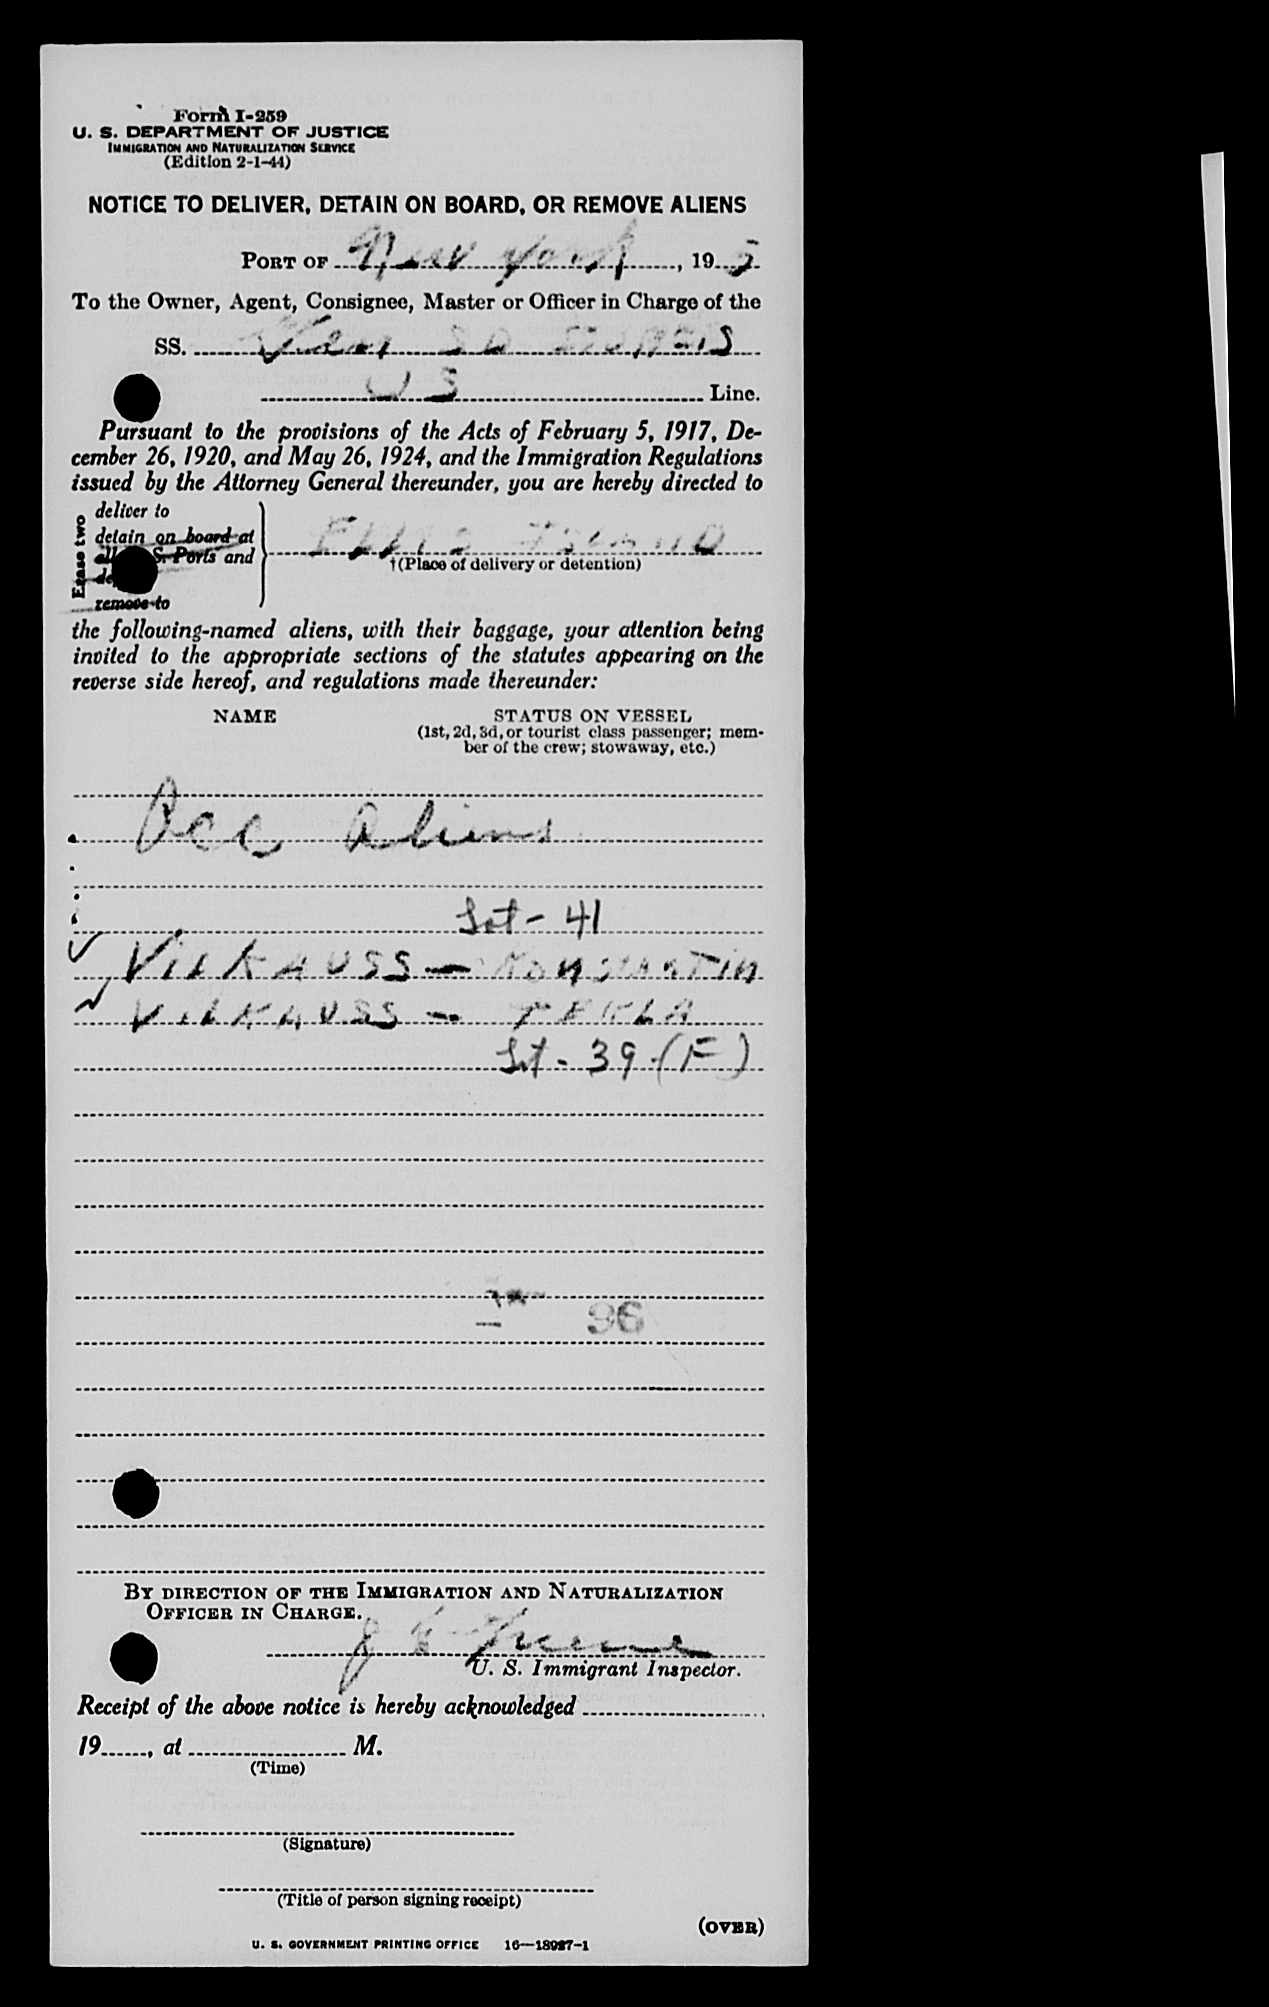 Form I-259
U. S. DEPARTMENT OF JUSTICE
IMMIGRATION AND NATURALIZATION SERVICE
(Edition 2-1-44)
NOTICE TO DELIVER, DETAIN ON BOARD, OR REMOVE ALIENS
PORT OF New York, 195
To the Owner, Agent, Consignee, Master or Officer in Charge of the
SS. Gen
US Line.
Pursuant to the provisions of the Acts of February 5, 1917, De-
cember 26, 1920, and May 26, 1924, and the Immigration Regulations
issued by the Attorney General thereunder, you are hereby directed to
Erase two
deliver to
detain on board at
S. Ports and
remove to
ELLIS ISLAND
†(Place of delivery or detention)
the following-named aliens, with their baggage, your attention being
invited to the appropriate sections of the statutes appearing on the
reverse side hereof, and regulations made thereunder:
NAME
STATUS ON VESSEL
(1st, 2d, 3d, or tourist class passenger; mem-
ber of the crew; stowaway, etc.)
Acc Aliens
- 41
VILKAUSS - KONSTANTIN
VILKAUSS - TEKLA
- 39 (F)
96
BY DIRECTION OF THE IMMIGRATION AND NATURALIZATION
OFFICER IN CHARGE.
U. S. Immigrant Inspector.
Receipt of the above notice is hereby acknowledged
19, at M.
(Time)
(Signature)
(Title of person signing receipt)
(OVER)
U. S. GOVERNMENT PRINTING OFFICE 16—18927-1